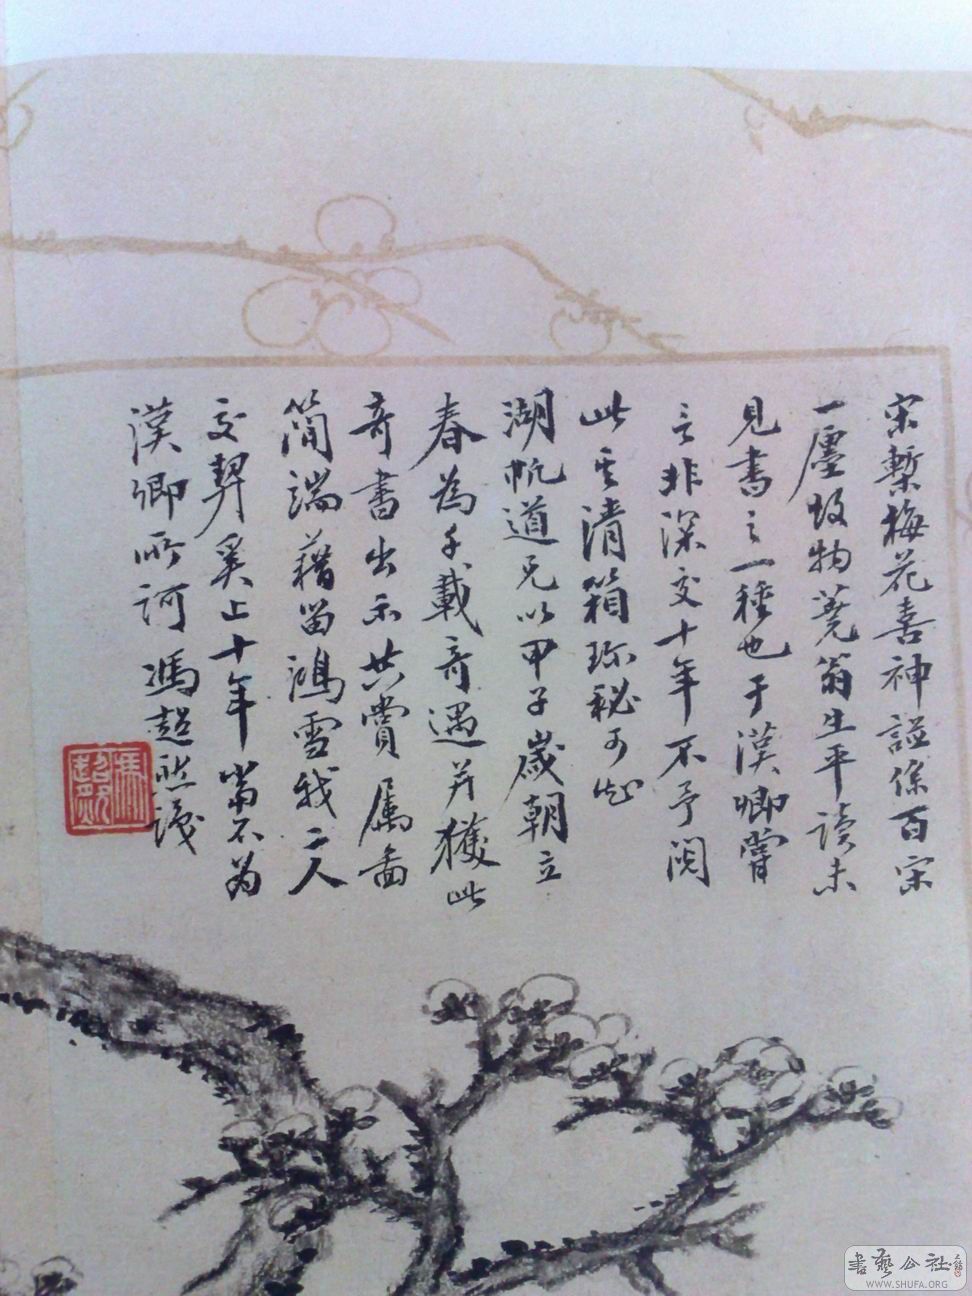 宋槧梅花喜神譜係百宋
一廛故物蕘翁生平讀未
見書之一種也于漢卿嘗
言非深交十年不予閱
此其清箱珎秘可知
湖帆道兄以甲子歲朝立
春為千載奇遇并獲此
奇書出示共賞屬畫
簡端藉留鴻雪我二人
交契奚止十年當不為
漢卿所訶馮超然識
馮超然
書藝公社
WWW.SHUFA.ORG